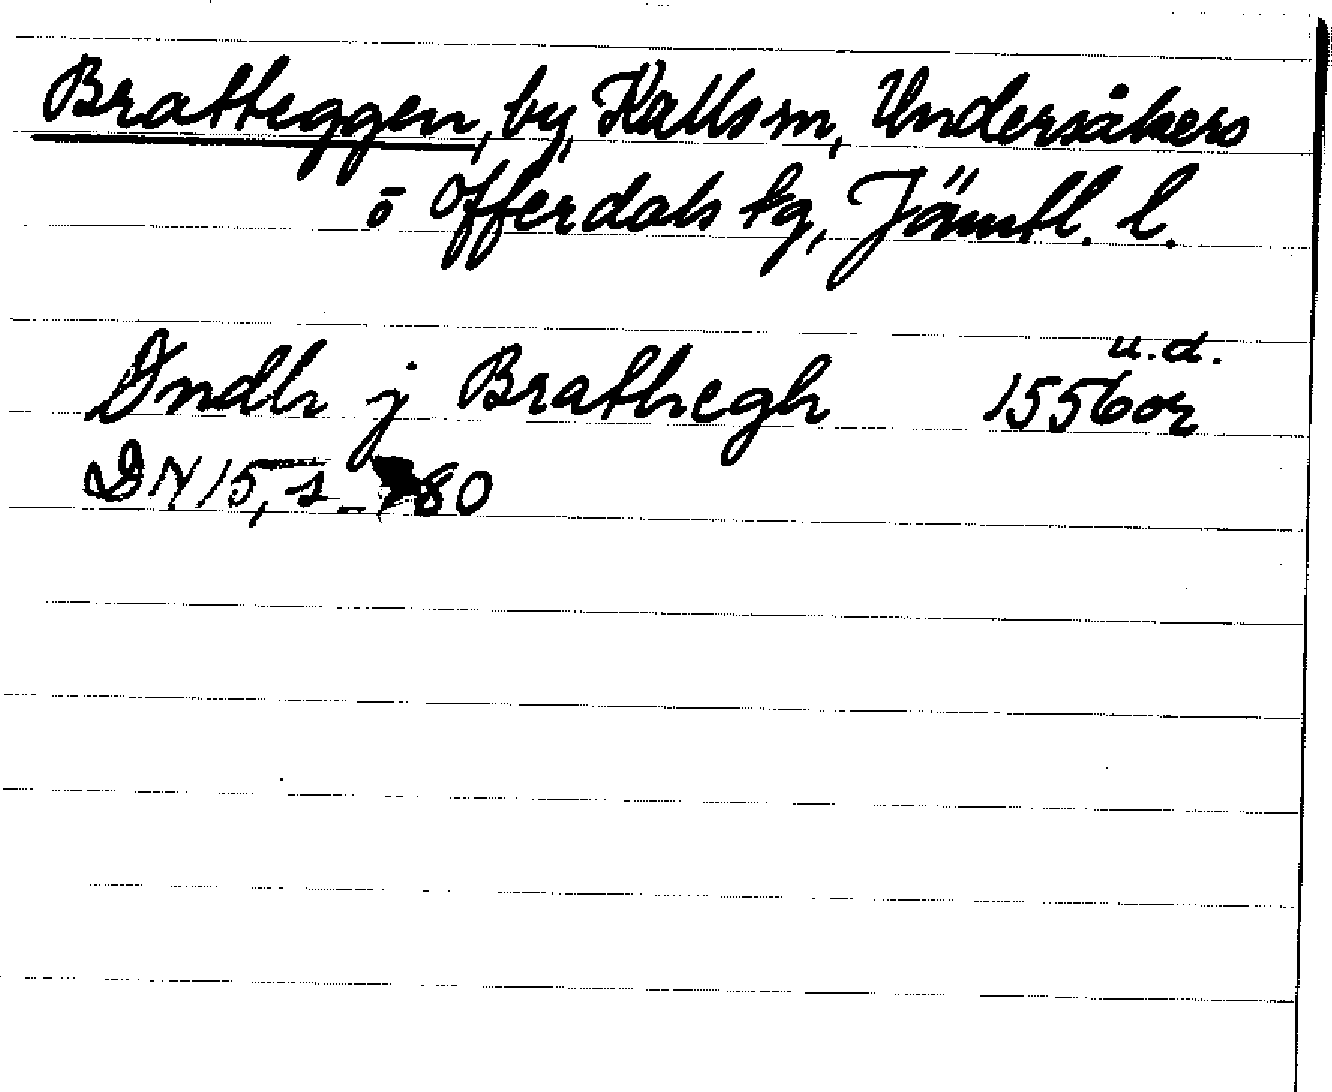 Bratteggen, by, Kalls sn, Undersåkers
o Offerdals tg, Jämtl. l.
u.d.
Indh j Brathegh 1556 or
DN 15, 1 80